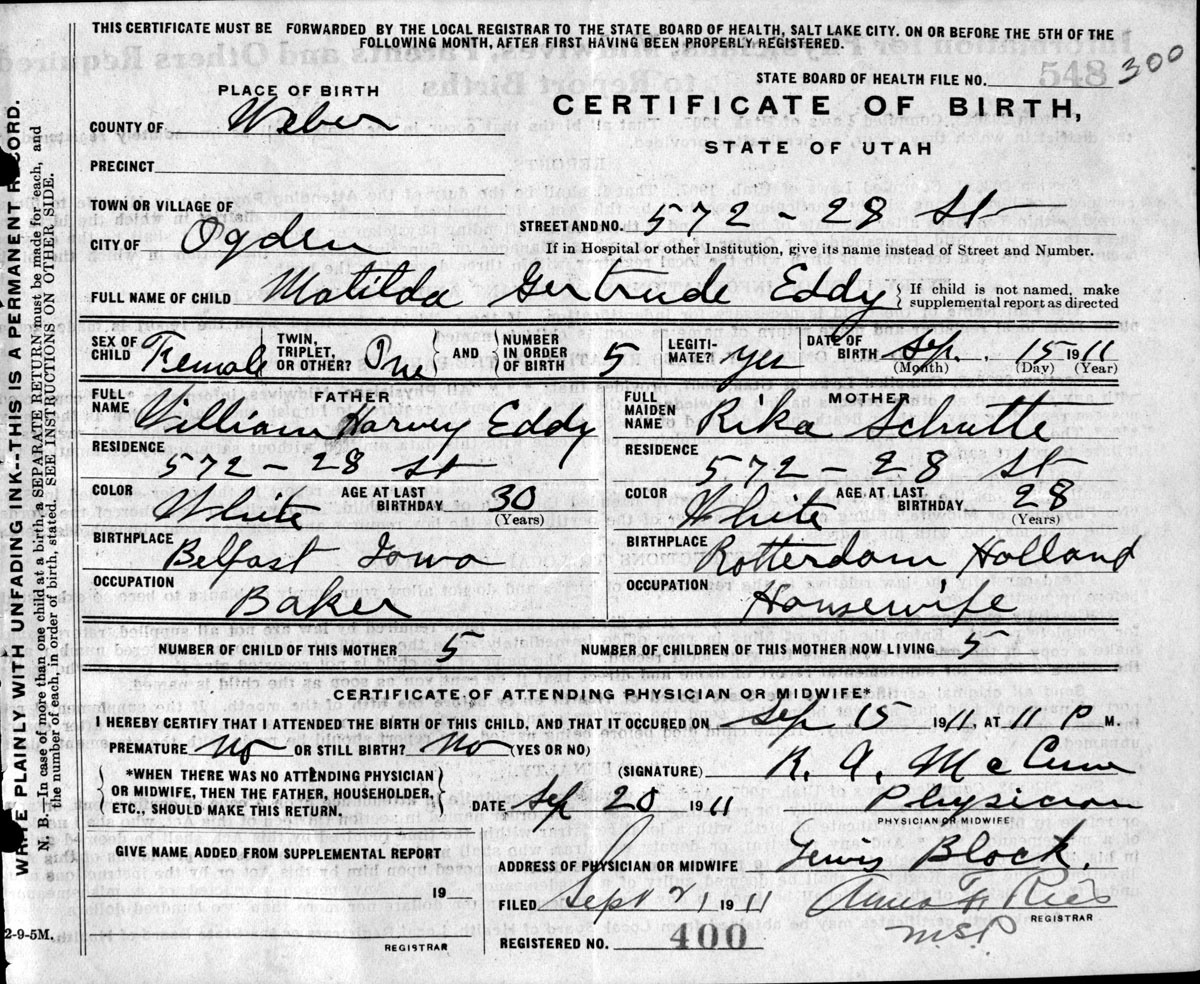 THIS CERTIFICATE MUST BE FORWARDED BY THE LOCAL REGISTRAR TO THE STATE BOARD OF HEALTH, SALT LAKE CITY. ON OR BEFORE THE 5TH OF THE
FOLLOWING MONTH, AFTER FIRST HAVING BEEN PROPERLY REGISTERED.
STATE BOARD OF HEALTH FILE NO. 548 300
PLACE OF BIRTH
CERTIFICATE OF BIRTH,
COUNTY OF Weber
STATE OF UTAH
PRECINCT
TOWN OR VILLAGE OF
STREET AND NO. 572 - 28 St
CITY OF Ogden
If in Hospital or other Institution, give its name instead of Street and Number.
FULL NAME OF CHILD Matilda Gertrude Eddy
If child is not named, make
supplemental report as directed
SEX OF CHILD Female
TWIN, TRIPLET, OR OTHER? One
AND NUMBER IN ORDER OF BIRTH 5
LEGITIMATE? yes
DATE OF BIRTH Sep. 15 1911
(Month) (Day) (Year)
FATHER
FULL NAME William Harvey Eddy
MOTHER
FULL MAIDEN NAME Rika Schutte
RESIDENCE 572 - 28 St
RESIDENCE 572 - 28 St
COLOR White AGE AT LAST BIRTHDAY 30 (Years)
COLOR White AGE AT LAST BIRTHDAY 28 (Years)
BIRTHPLACE Belfast Iowa
BIRTHPLACE Rotterdam Holland
OCCUPATION Baker
OCCUPATION Housewife
NUMBER OF CHILD OF THIS MOTHER 5
NUMBER OF CHILDREN OF THIS MOTHER NOW LIVING 5
CERTIFICATE OF ATTENDING PHYSICIAN OR MIDWIFE*
I HEREBY CERTIFY THAT I ATTENDED THE BIRTH OF THIS CHILD, AND THAT IT OCCURED ON Sep 15 1911, AT 11 P M.
PREMATURE No OR STILL BIRTH? No (YES OR NO)
*WHEN THERE WAS NO ATTENDING PHYSICIAN
OR MIDWIFE, THEN THE FATHER, HOUSEHOLDER,
ETC., SHOULD MAKE THIS RETURN.
(SIGNATURE) R. A. McCune
DATE Sep 20 1911
Physician
PHYSICIAN OR MIDWIFE
GIVE NAME ADDED FROM SUPPLEMENTAL REPORT
19
REGISTRAR
ADDRESS OF PHYSICIAN OR MIDWIFE Lewis Block.
FILED Sept 21 1911
REGISTRAR
REGISTERED NO. 400
2-9-5M.
WRITE PLAINLY WITH UNFADING INK--THIS IS A PERMANENT RECORD.
N. B.—In case of more than one child at a birth, a SEPARATE RETURN must be made for each, and
the number of each, in order of birth, stated. SEE INSTRUCTIONS ON OTHER SIDE.